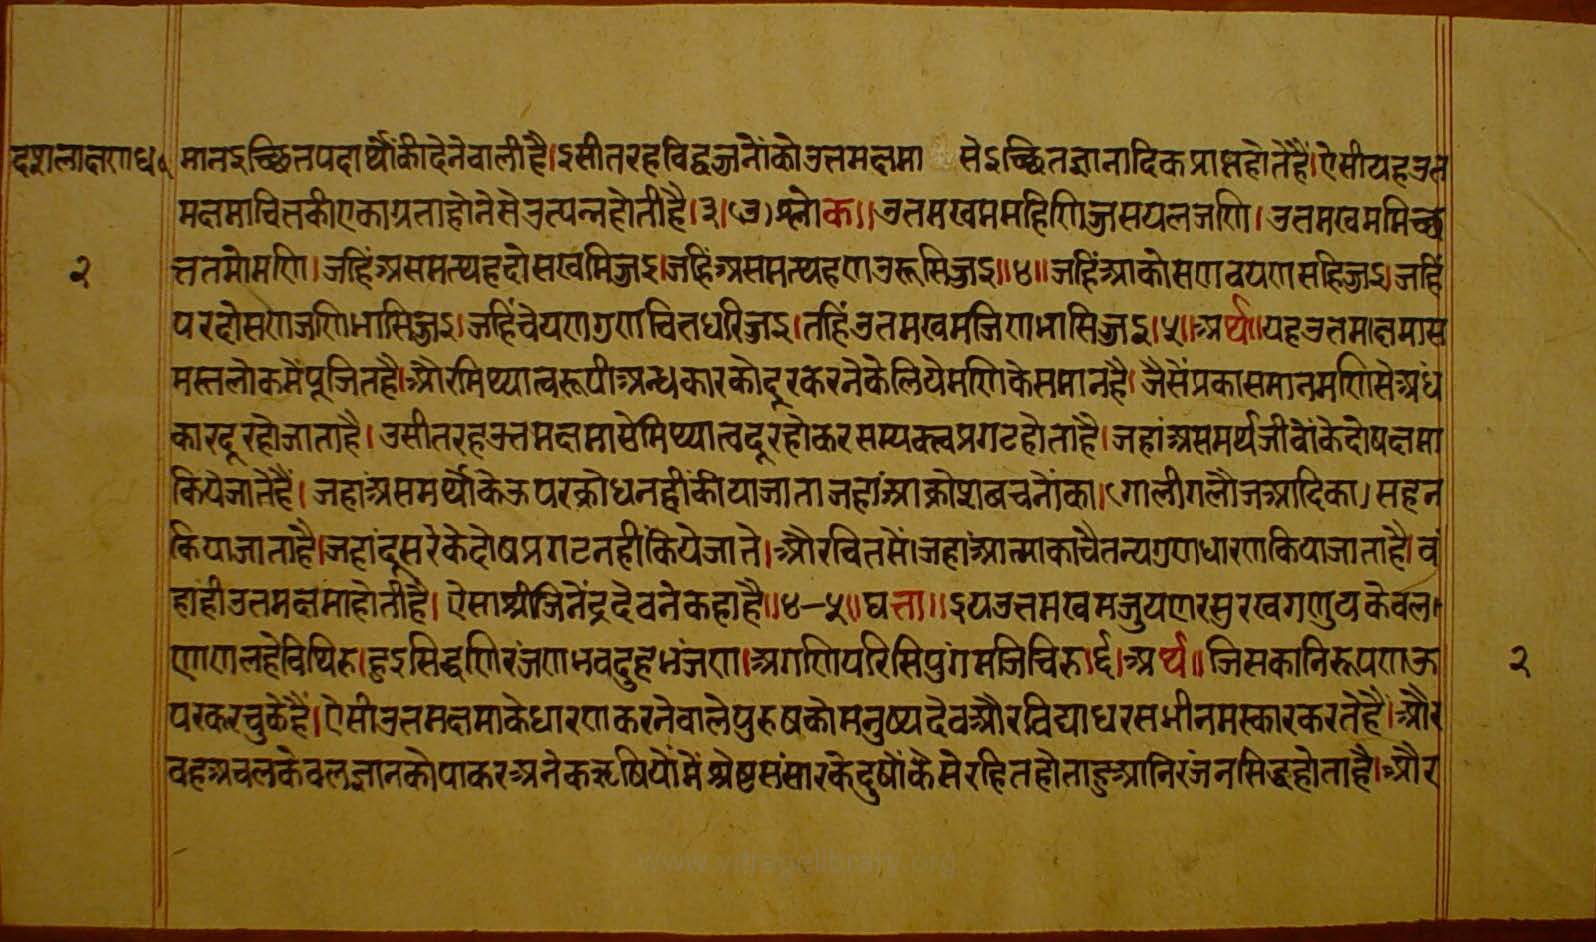 दशलाक्षणध॰ मानइच्छितपदार्थोंकीदेनेवालीहै।इसीतरहविद्वज्जनोंकोउत्तमक्षमा सेइच्छितज्ञानादिकप्राप्तहोतेहैं।ऐसीयहउत्त
मक्षमाचित्तकीएकाग्रताहोनेसेउत्पन्नहोतीहै।३।(३)श्लोक॥उत्तमखममहिणिज्जसयलजणि।उत्तमखममिच्छ
२ त्ततमोमणि।जहिंअसमत्थहदोसखमिज्जइ।जहिंअसमत्थहणउरूसिज्जइ॥४॥जहिंआकोसणवयणसहिज्जइ।जहिं
परदोसणजणिभासिज्जइ।जहिंचेयणगुणचित्तधरिज्जइ।तहिंउत्तमखमजिणभासिज्जइ।५॥अर्थ॥यहउत्तमक्षमास
मस्तलोकमेंपूजितहै।औरमिथ्यात्वरूपीअन्धकारकोदूरकरनेकेलियेमणिकेसमानहै।जैसेंप्रकासमानमणिसेअंध
कारदूरहोजाताहै।उसीतरहउत्तमक्षमासेमिथ्यात्वदूरहोकरसम्यक्त्वप्रगटहोताहै।जहांअसमर्थजीवोंकेदोषक्षमा
कियेजातेहैं।जहांअसमर्थोकेऊपरक्रोधनहींकीयाजाताजहांआक्रोशबचनोंका।(गालीगलौजआदिका)सहन
कियाजाताहै।जहांदूसरेकेदोषप्रगटनहींकियेजाते।औरचितमें।जहांआत्माकाचैतन्यगुणधारणकियाजाताहै।वं
हांहीउत्तमक्षमाहोतीहै।ऐसाश्रीजिनेंद्रदेवनेकहाहै॥४-५॥घत्ता॥इयउत्तमखमजुयणरसुरखगणुयकेवल।
णाणलहेविथिरु।हुइसिद्धणिरंजणभवदुहभंजण।अगणिपरिसिपुंगमजिचिरु।६।अर्थ॥जिसकानिरूपणऊ २
परकरचुकेहैं।ऐसीउत्तमक्षमाकेधारणकरनेवालेपुरुषकोमनुष्यदेवऔरविद्याधरसभीनमस्कारकरतेहै।और
वहअचलकेवलज्ञानकोपाकरअनेकऋषियोंमेंश्रेष्ठसंसारकेदुषोंकेसेरहितहोताहुआनिरंजनसिद्धहोताहै।और
www.vitragelibrary.org